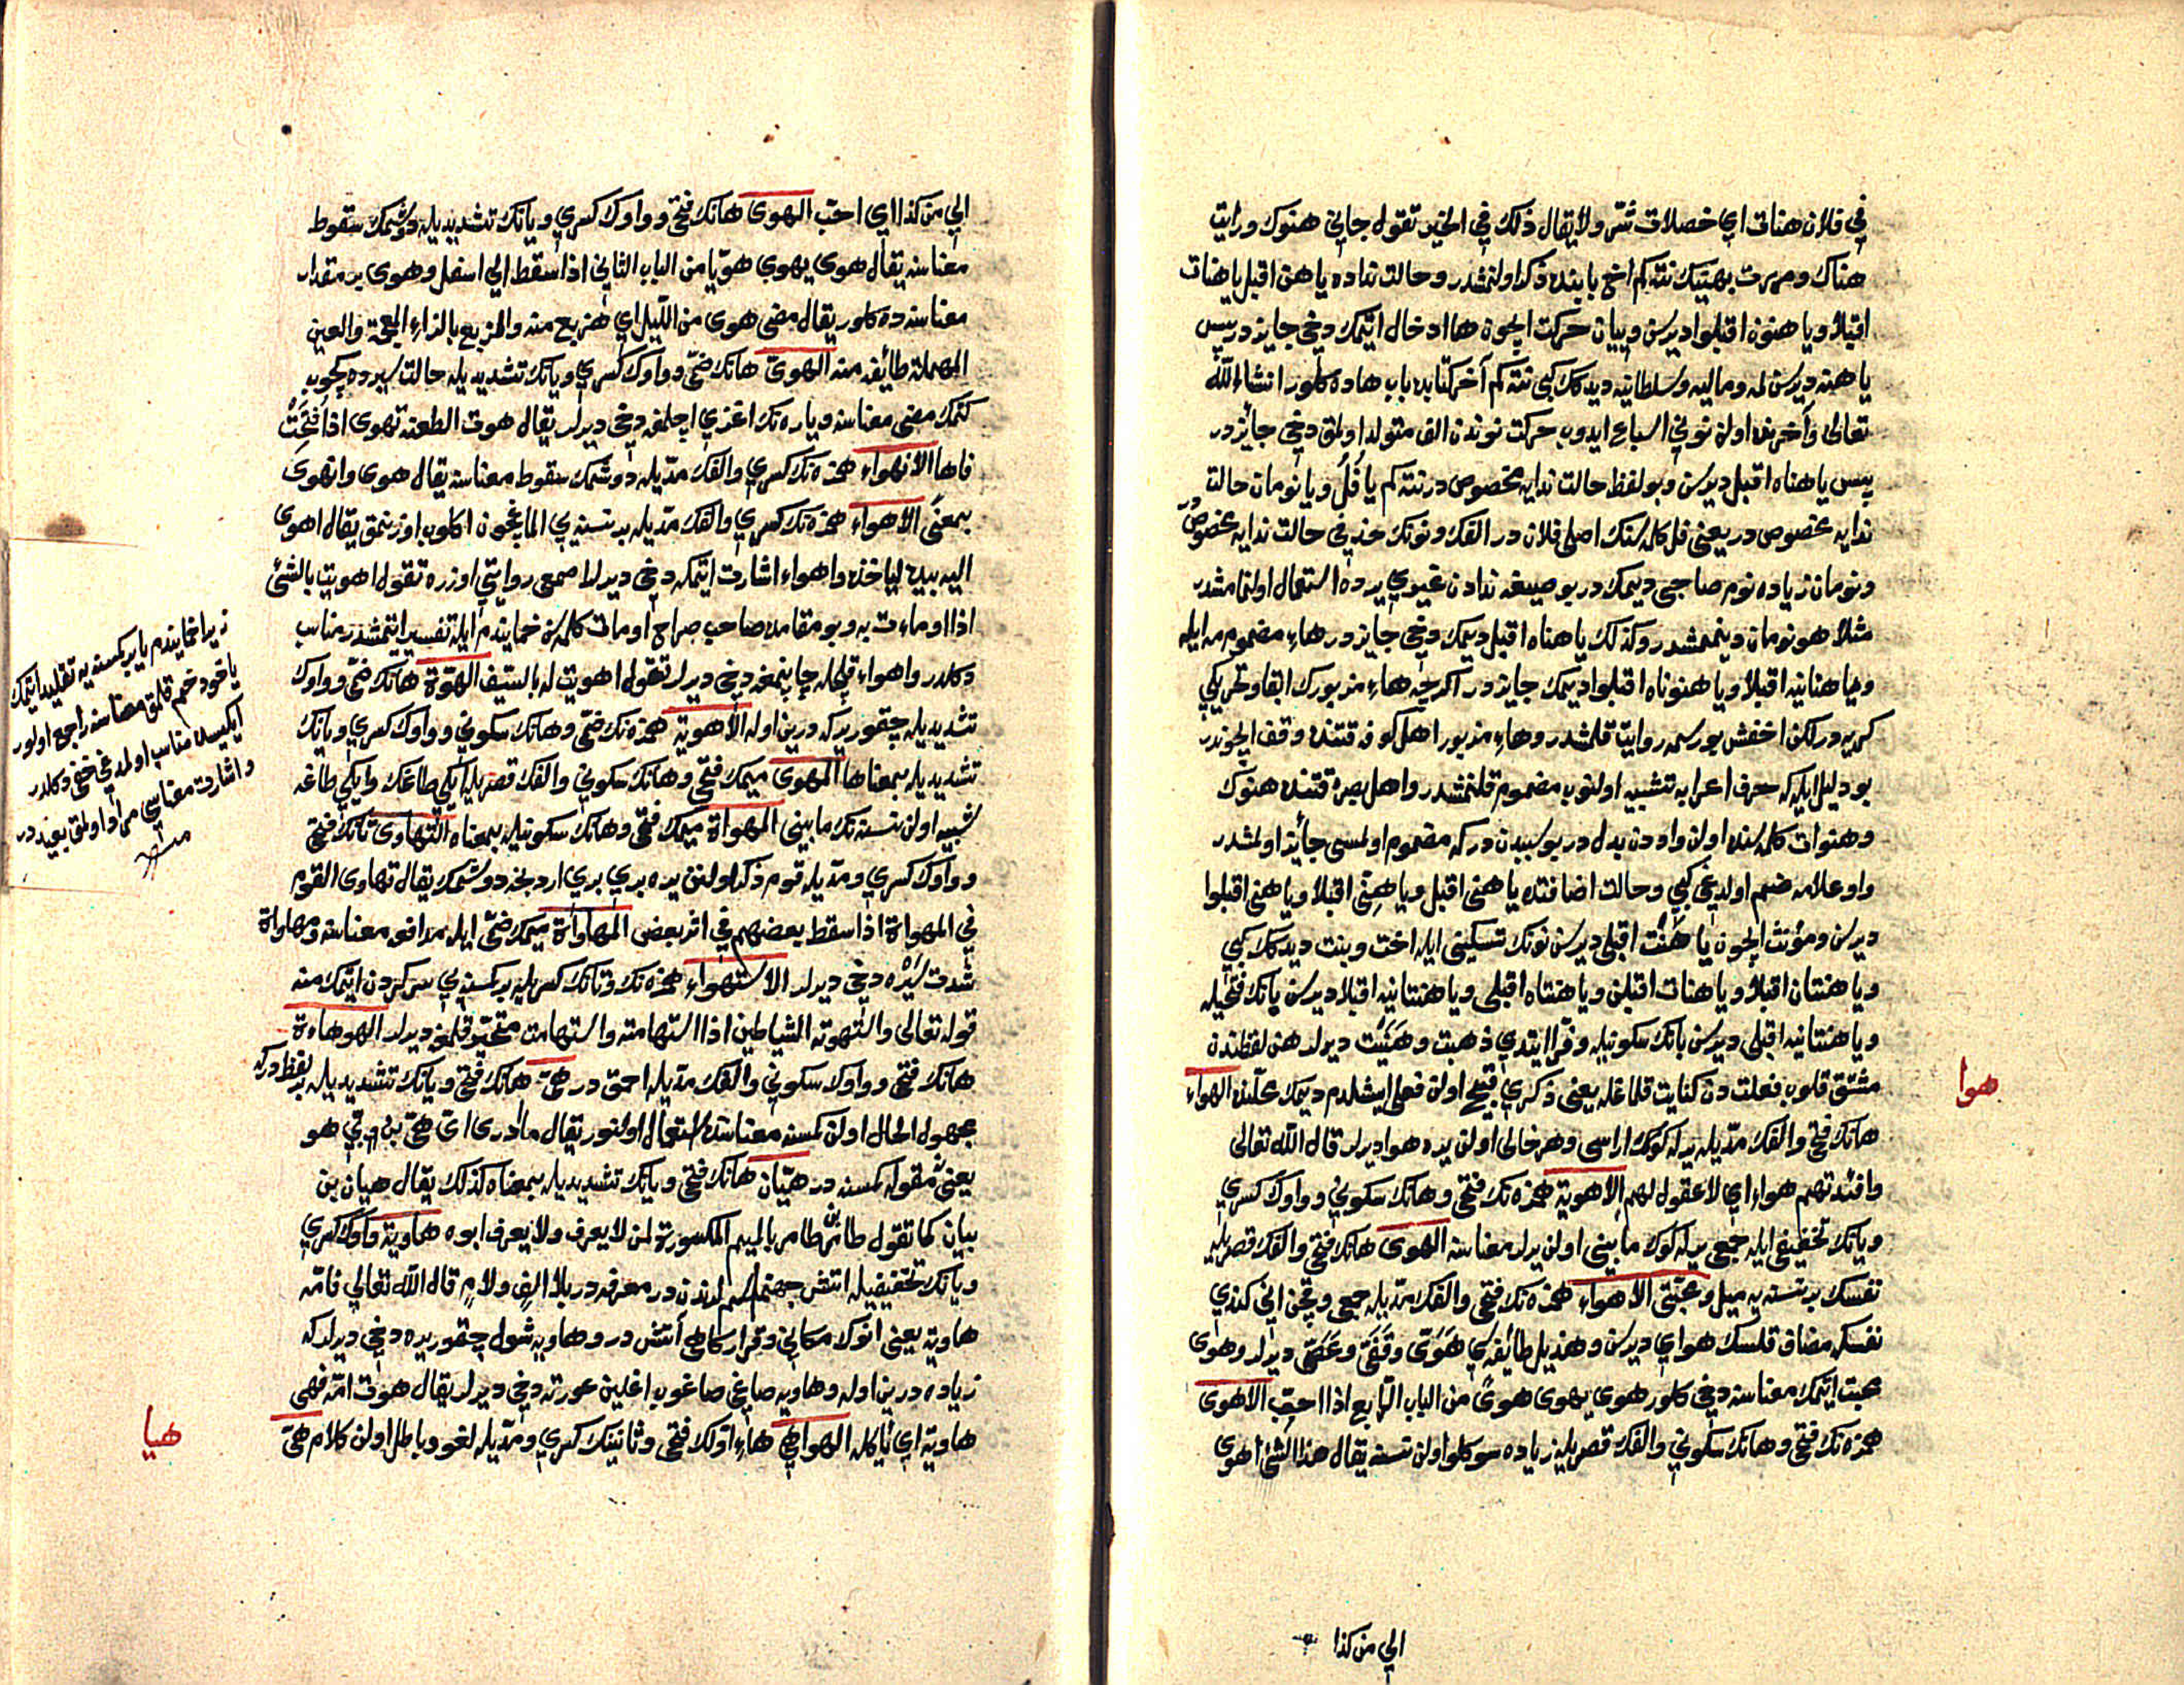 في فلان هنات اي خصلات شر ولا يقال ذلك في الخير تقول جاني هنوك ورايت
هناك ومررت بهنيك نته كم اخ بابنده ذكر اولنمشدر وحالت نداده يا هن اقبل يا هنان
اقبلا ويا هنون اقبلوا ديرسن وبيان حركت ايچون ها ادخال ايتمك دخي جايز در پس
يا هنه ديرسن لمه وماليه وسلطانيه ديدكك كبي نته كم آخر كتابده باب هاده كلور انشاء الله
تعالى وآخرنده اولن نوني اشباع ايدوب حركت نوندن الف متولد اولمق دخي جايز در
پس يا هناه اقبل ديرسن وبو لفظ حالت ندايه مخصوص در نته كم يا فل ويا نومان حالت
ندايه مخصوص در يعني فل كلمه سنك اصلي فلان در الفك ونونك حذفي حالت ندايه مخصوص در
ونومان زياده نوم صاحبي ديمك در بو صيغه ندادن غيري يرده استعمال اولنمامشدر
مثلا هو نومان دينمشدر وكذلك يا هناه اقبل ديمك دخي جايز در هاء مضمومه ايله
ويا هنانيه اقبلا ويا هنوناه اقبلوا ديمك جايز در اكرچه هاء مزبورك ابقا وتحريكي
كريه در لكن اخفش بو رسمه روايت قلمشدر وهاء مزبور اهل كوفه قتنده وقف ايچوندر
بو دليل ايله كه حرف اعرابه تشبيه اولنوب مضموم قلنمشدر واهل بصره قتنده هنوك
وهنوات كلمه سنده اولن واودن بدل در بو سببدن در كه مضموم اولمسى جائز اولمشدر
واو علامه ضم اولديغي كبي وحالت اضافتده يا هني اقبل ويا هنيّ اقبلا ويا هنيّ اقبلوا
ديرسن ومؤنث ايچون يا هَنْتُ اقبلي ديرسن نونك تسكيني ايله اخت وبنت ديدكك كبي
ويا هنتان اقبلا ويا هنات اقبلن ويا هنتاه اقبلي ويا هنتانيه اقبلا ديرسن يانك فتحيله
ويا هنتانيه اقبلي ديرسن يانك سكونيله وفرا ايتدي ذهبت وهنيت ديرلر هن لفظندن
مشتق قلوب فعلت دن كنايت قلماغله يعني ذكري قبيح اولن فعلي ايشلدم ديمك محلنده الهواء
هوا
هانك فتحي والفك مديله يرله كوك اراسى وهر خالي اولن يره هوا ديرلر قال الله تعالى
وافئدتهم هواء اي لا عقول لهم الاهوية همزه نك فتحي وهانك سكوني وواوك كسري
ويانك تخفيفى ايله جمعي يرله كوك مابيني اولن يرلر معناسنه الهوى هانك فتحي والفك قصريله
نفسك بر نسنه يه ميل ومحبتى الاهواء همزه نك فتحي والفك مديله جمعي وقچن اني كندي
نفسكه مضاف قلسك هواي ديرسن وهذيل طائفه سي هَوَيَّ وقَفَيَّ وعَصَيَّ ديرلر وهوى
محبت ايتمك معناسنه دخي كلور هوي يهوى هوًى من الباب الرابع اذا احب الاهوى
همزه نك فتحي وهانك سكوني والفك قصريله زياده سوكلو اولن نسنه يقال هذا الشئ اهوى
الي من كذا
الي من كذا اي احب الهوى هانك فتحي وواوك كسري ويانك تشديديله دوشمك سقوط
معناسنه يقال هوى يهوي هويّا من الباب الثاني اذا سقط الي اسفل وهوى بر مقدار
معناسنه ده كلور يقال مضى هوى من الليل اي هزيع منه والهزيع بالزاء المعجمة والعين
المهملة طائفة منه الهوى هانك ضمي وواوك كسري ويانك تشديديله حالت سيرده كچوب
كتمك مضى معناسنه ويارەنك اغزي اچلمغه دخي ديرلر يقال هوت الطعنه تهوى اذا فتحت
فاها الانهواء همزه نك كسري والفك مديله دوشمك سقوط معناسنه يقال هوى وانهوى
بمعنى الاهواء همزه نك كسري والفك مديله بر نسنه يي الماغيچون اكلوب اوزنمق يقال اهوى
اليه بيده لياخذه واهواء اشارت ايتمكه دخي ديرلر اصمعي روايتي اوزره تقول اهويت بالشئ
اذا اوماءت به وبو مقامده صاحب صراح اومات كلمه سن خمايندم ايله تفسير ايتمشدر مناسب
دكلدر واهواء قلچله چاپنمغه دخي ديرلر تقول اهويت له بالسيف الهوّة هانك ضمي وواوك
تشديديله چقور يركه درين اوله الاهوية همزه نك ضمي وهانك سكوني وواوك كسري ويانك
تشديديله بمعناها المهوى ميمك فتحي وهانك سكوني والفك قصريله ايكي طاغك وايكي طاغه
شبيه اولن نسنه نك مابيني المهواة ميمك فتحي وهانك سكونيله بمعناه التهاوى تانك فتحي
وواوك كسري ومديله قوم ذكر اولنن يره بري بري اردنجه دوشمك يقال تهاوى القوم
في المهواة اذا سقط بعضهم في اثر بعض المهاواة ميمك ضمي ايله مدافعه معناسنه ومهاواة
شدت سيره دخي ديرلر الاستهواء همزه نك وتانك كسريله بر كمسنه يي سركردن ايتمك منه
قوله تعالى واستهوته الشياطين اذا استهامته واستهامت متحير قلمغه ديرلر الهوهاءة
هانك فتحي وواوك سكوني والفك مديله احمق در هيّ هانك فتحي ويانك تشديديله بر لفظدركه
مجهول الحال اولن كمسنه معناسنده استعمال اولنور يقال ما ادرى اى هيّ بن بيّ هو
يعني نه مقوله كمسنه در هيّان هانك فتحي ويانك تشديديله بمعناه كذلك يقال هيان بن
بيان كما تقول طامر بن طامر بالميم المكسورة لمن لا يعرف ولا يعرف ابوه هاوية واوك كسري
ويانك تخفيفيله اتش جهنم اسملرندن در معرفه در بلا الف ولام قال الله تعالي فامّه
هاوية يعني انوك مكاني وقراركاهي اتش در وهاويه شول چقور يره دخي ديرلر كه
زياده درين اوله وهاويه صاغي صاغوب اغلين عورته دخي ديرلر يقال هوت امّه فهى
هاوية اي ثاكله الهواهي هاء اولك فتحي وثانينك كسري ومديله لغو وباطل اولن كلام هيّ
هيا
زيرا خمايندم يا بر كمسنه يه تقليد ايتمك
ياخود خم قلمق معناسنه راجع اولور
ايكيسي ده مناسب اولمديغي خفي دكلدر
واشارت معناسي مراد اولمق بعيددر